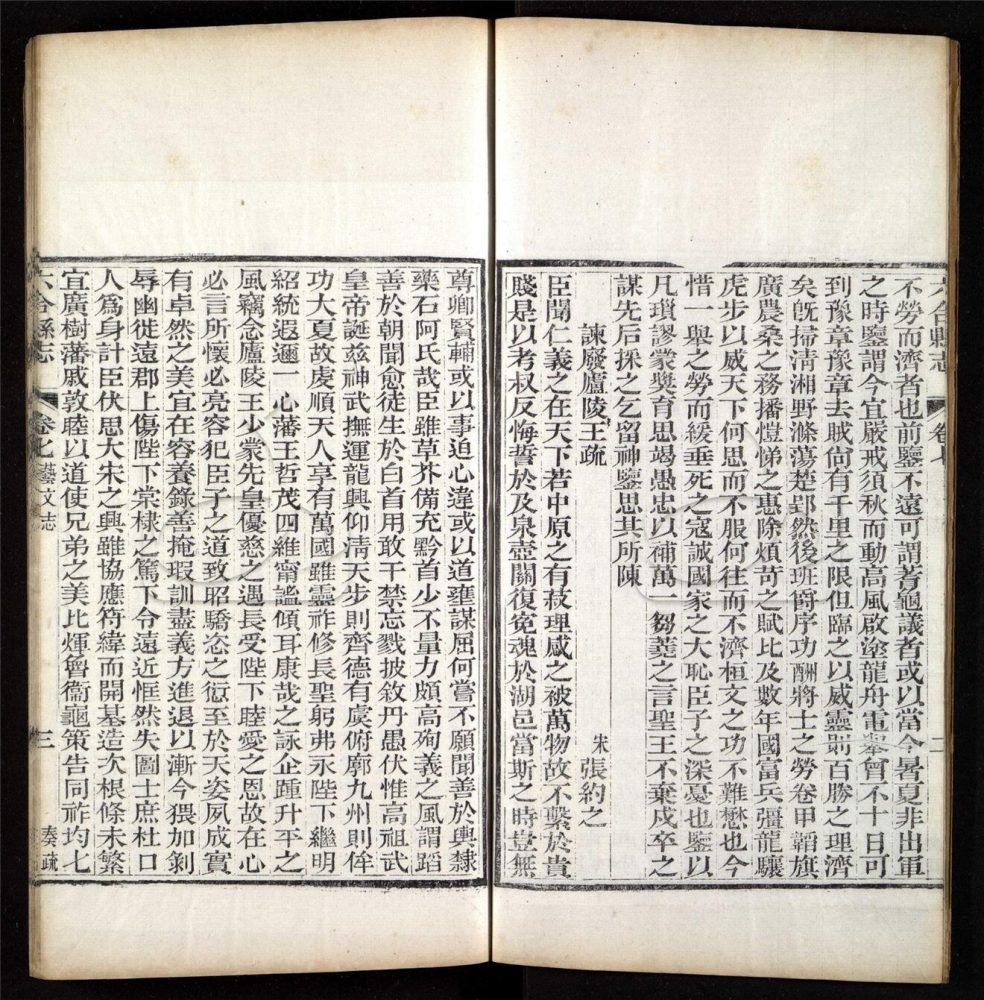 六合縣志
卷七
二
不勞而濟者也前鑒不遠可謂蓍龜議者或以當今暑夏非出軍
之時鑒謂今宜嚴戒須秋而動高風啟塗龍舟電舉曾不十日可
到豫章豫章去賊尙有千里之限但臨之以威靈則百勝之理濟
矣旣掃淸湘野滌蕩楚郢然後班爵序功酬將士之勞卷甲韜旗
廣農桑之務播愷悌之惠除煩苛之賦比及數年國富兵彊龍驤
虎步以威天下何思而不服何往而不濟桓文之功不難懋也今
惜一舉之勞而緩垂死之寇誠國家之大恥臣子之深憂也鑒以
凡瑣謬蒙奬育思竭愚忠以補萬一芻蕘之言聖王不棄戍卒之
謀先后採之乞留神鑒思其所陳
諫廢廬陵王疏
宋 張約之
臣聞仁義之在天下若中原之有菽理感之被萬物故不繫於貴
賤是以考叔反悔誓於及泉壺關復寃魂於湖邑當斯之時豈無
尊卿賢輔或以事迫心違或以道壅謀屈何嘗不願聞善於輿隸
藥石阿氏哉臣雖草芥備充黔首少不量力頗高殉義之風謂蹈
善於朝聞愈徒生於白首用敢干禁忘戮披敘丹愚伏惟高祖武
皇帝誕兹神武撫運龍興仰淸天步則齊德有虞俯廓九州則侔
功大夏故虔順天人享有萬國雖靈祚修長聖躬弗永陛下繼明
紹統遐邇一心藩王哲茂四維甯謐傾耳康哉之詠企踵升平之
風竊念廬陵王少蒙先皇優慈之遇長受陛下睦愛之恩故在心
必言所懷必亮容犯臣子之道致昭驕恣之愆至於天姿夙成實
有卓然之美宜在容養錄善掩瑕訓盡義方進退以漸今猥加剝
辱幽徙遠郡上傷陛下棠棣之篤下令遠近恇然失圖士庶杜口
人爲身計臣伏思大宋之興雖協應符緯而開基造次根條未繁
宜廣樹藩戚敦睦以道使兄弟之美比煇魯衞龜策告同祚均七
六合縣志
卷七 藝文志
三
奏疏